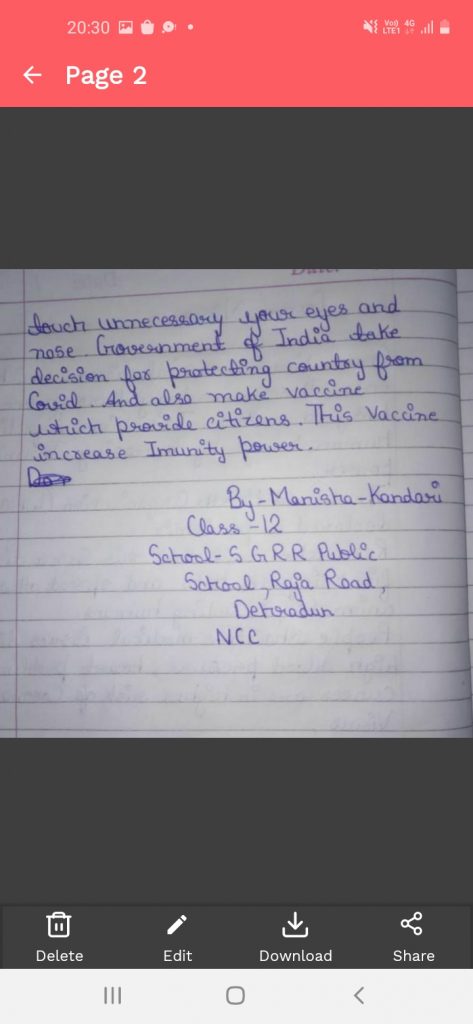 20:30 Vo) 4G LTE1
Page 2
touch unnecessary your eyes and
nose. Government of India take
decision for protecting country from
Covid. And also make vaccine
which provide citizens. This Vaccine
increase Imunity power.
By-Manisha-Kandari
Class -12
School-S G R R Public
School, Raja Road,
Dehradun
NCC
Delete Edit Download Share